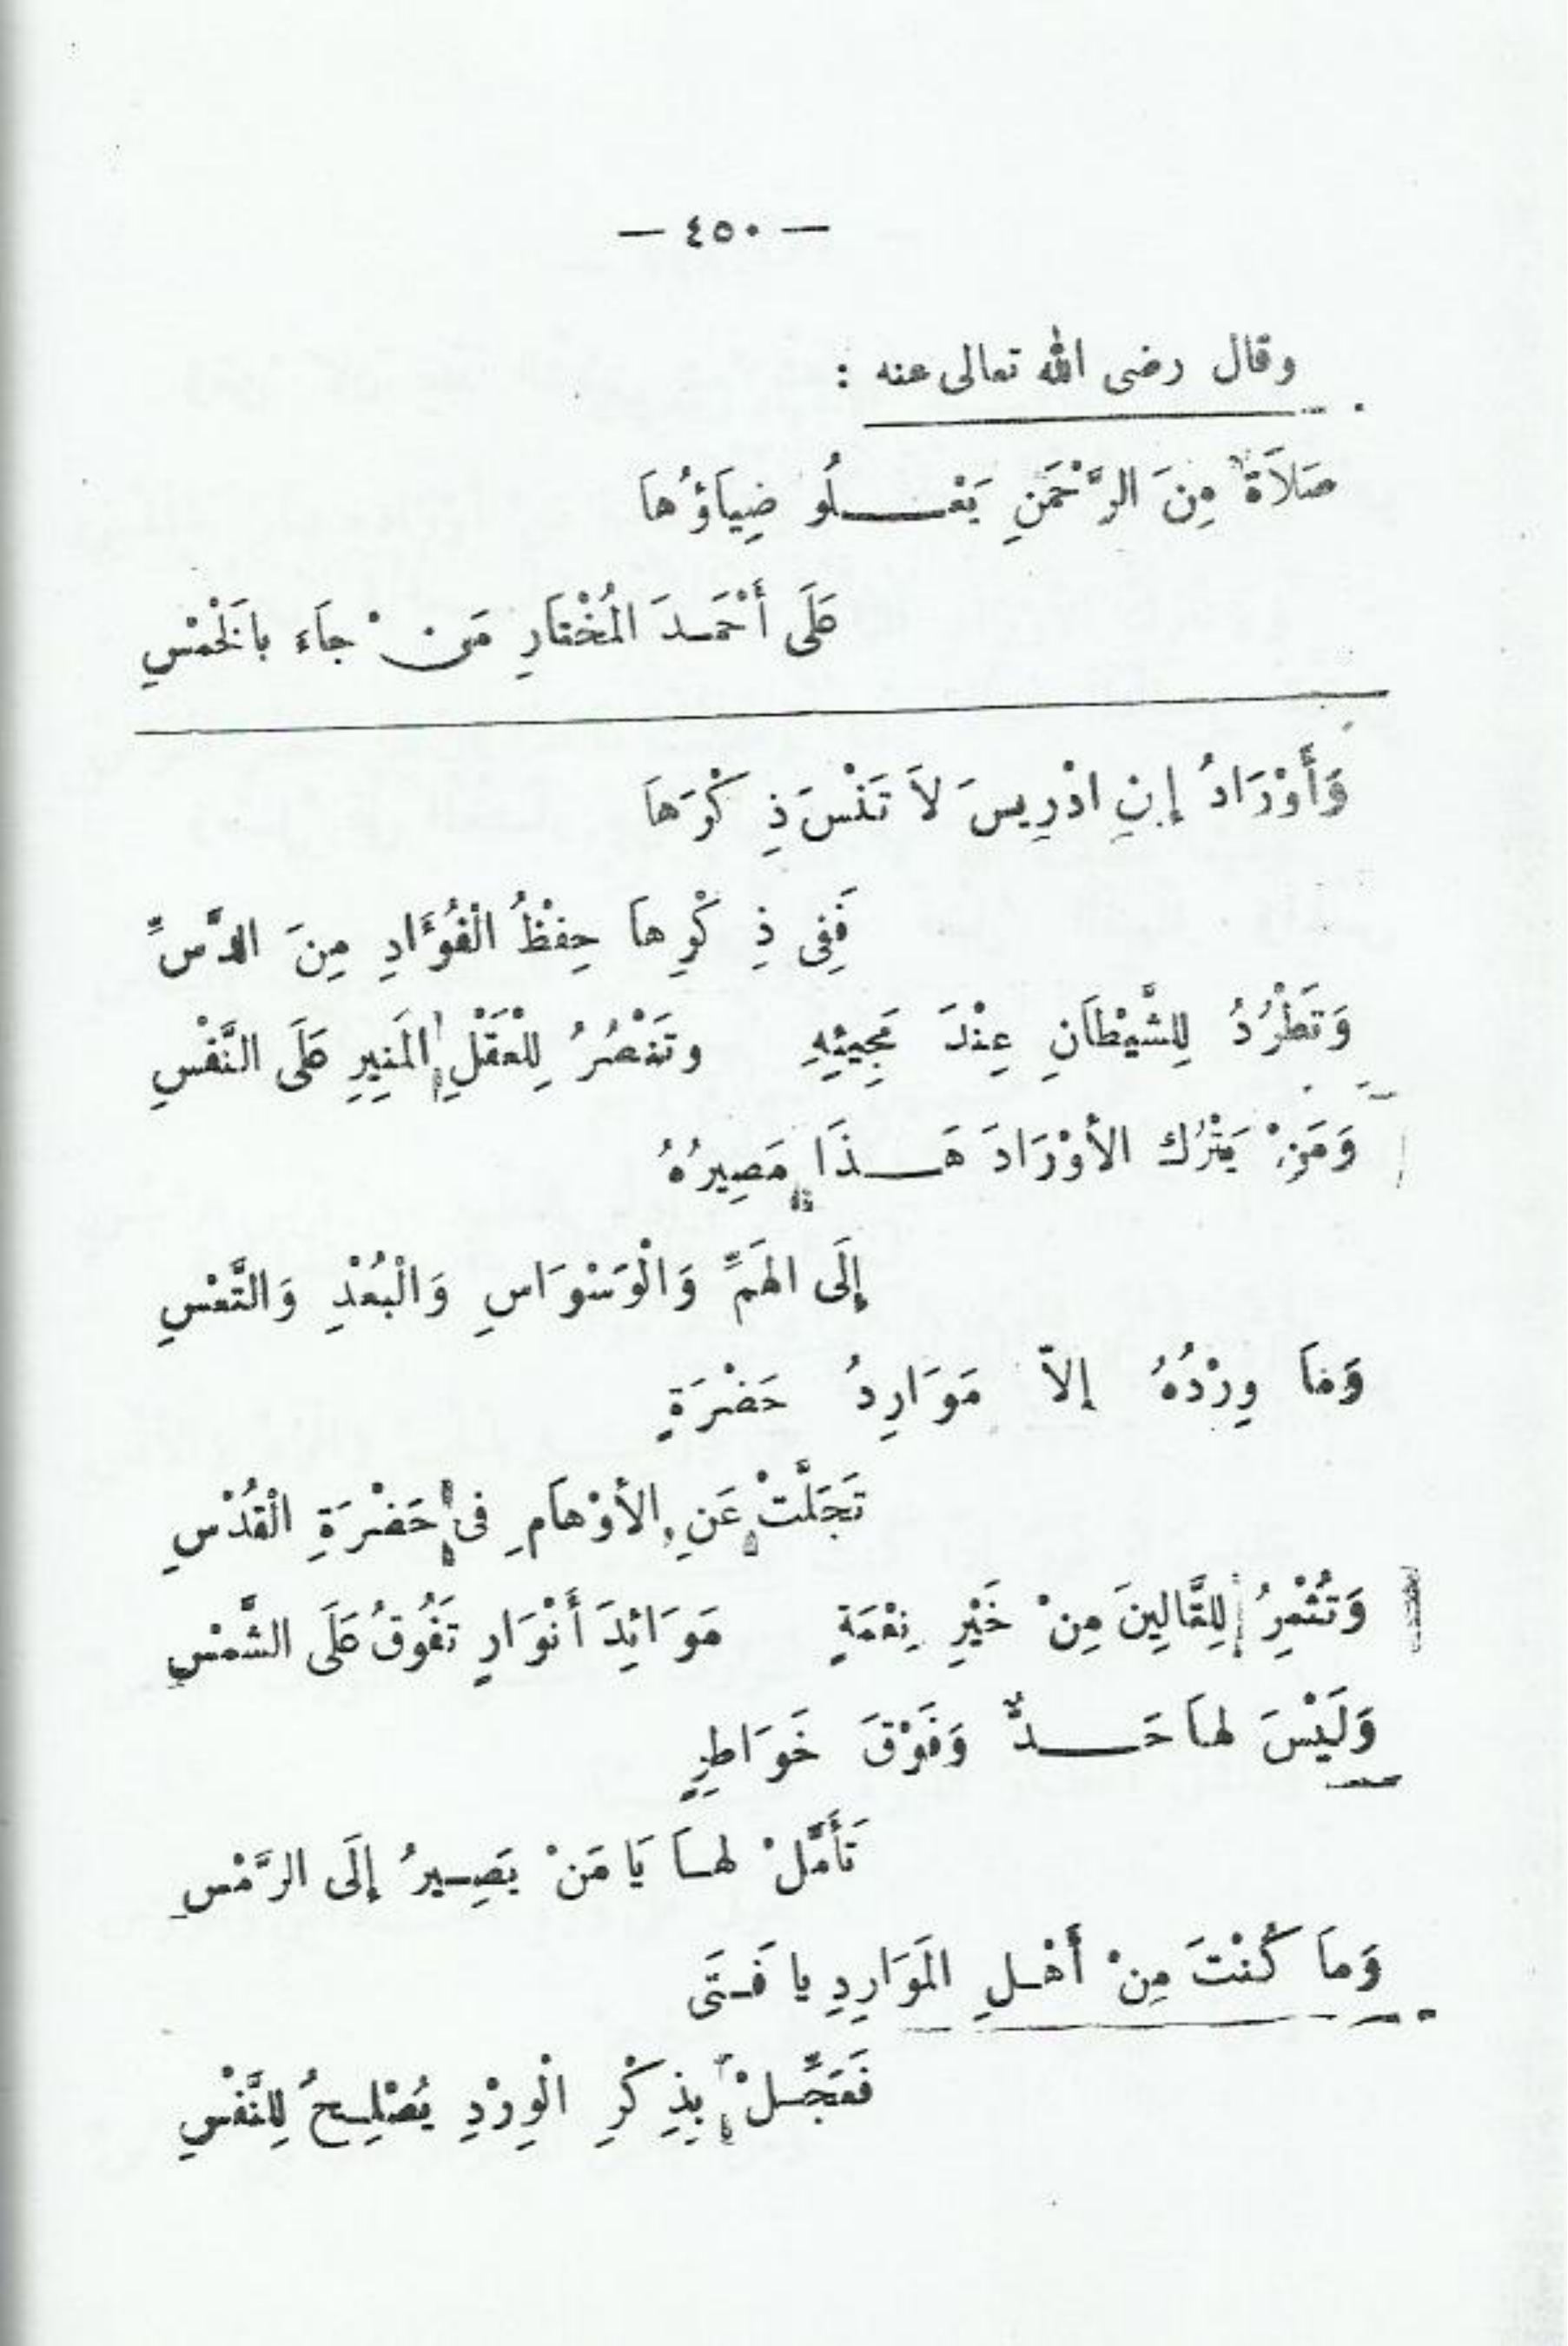 — ٤٥٠ —
وقال رضى الله تعالى عنه :
صَلَاةٌ مِنَ الرَّحْمَنِ يَعْلُو ضِيَاؤُهَا
عَلَى أَحْمَدَ الْمُخْتَارِ مَنْ جَاءَ بِالْخَمْسِ
وَأَوْرَادُ إِبنِ ادْرِيسَ لاَ تَنْسَ ذِكْرَهَا
فَفِى ذِكْرِهَا حِفْظُ الْفُؤَادِ مِنَ الدَّسِّ
وَتَطْرُدُ لِلشَّيْطَانِ عِنْدَ مَجِيئِهِ وتَنْصُرُ لِلْعَقْلِ الْمَنِيرِ عَلَى النَّفْسِ
وَمَنْ يَتْرُك الأَوْرَادَ هَذَا مَصِيرُهُ
إِلَى الهَمِّ وَالْوَسْوَاسِ وَالْبُعْدِ وَالتَّعْسِ
وَمَا وِرْدُهُ إلاّ مَوَارِدُ حَضْرَةٍ
تَجَلَّتْ عَنِ الأَوْهَامِ فى حَضْرَةِ الْقُدْسِ
وَتُثْمِرُ لِلتَّالِينَ مِنْ خَيْرِ نِعْمَةٍ مَوَائِدَ أَنْوَارٍ تَفُوقُ عَلَى الشَّمْسِ
وَلَيْسَ لهَا حَدٌّ وَفَوْقَ خَوَاطِرٍ
تَأَمَّلْ لهَا يَا مَنْ يَصِيرُ إِلَى الرَّمْسِ
وَمَا كُنْتَ مِنْ أَهْلِ الْمَوَارِدِ يا فَتَى
فَعَجِّلْ بِذِكْرِ الْوِرْدِ يُصْلِحُ لِلنَّفْسِ